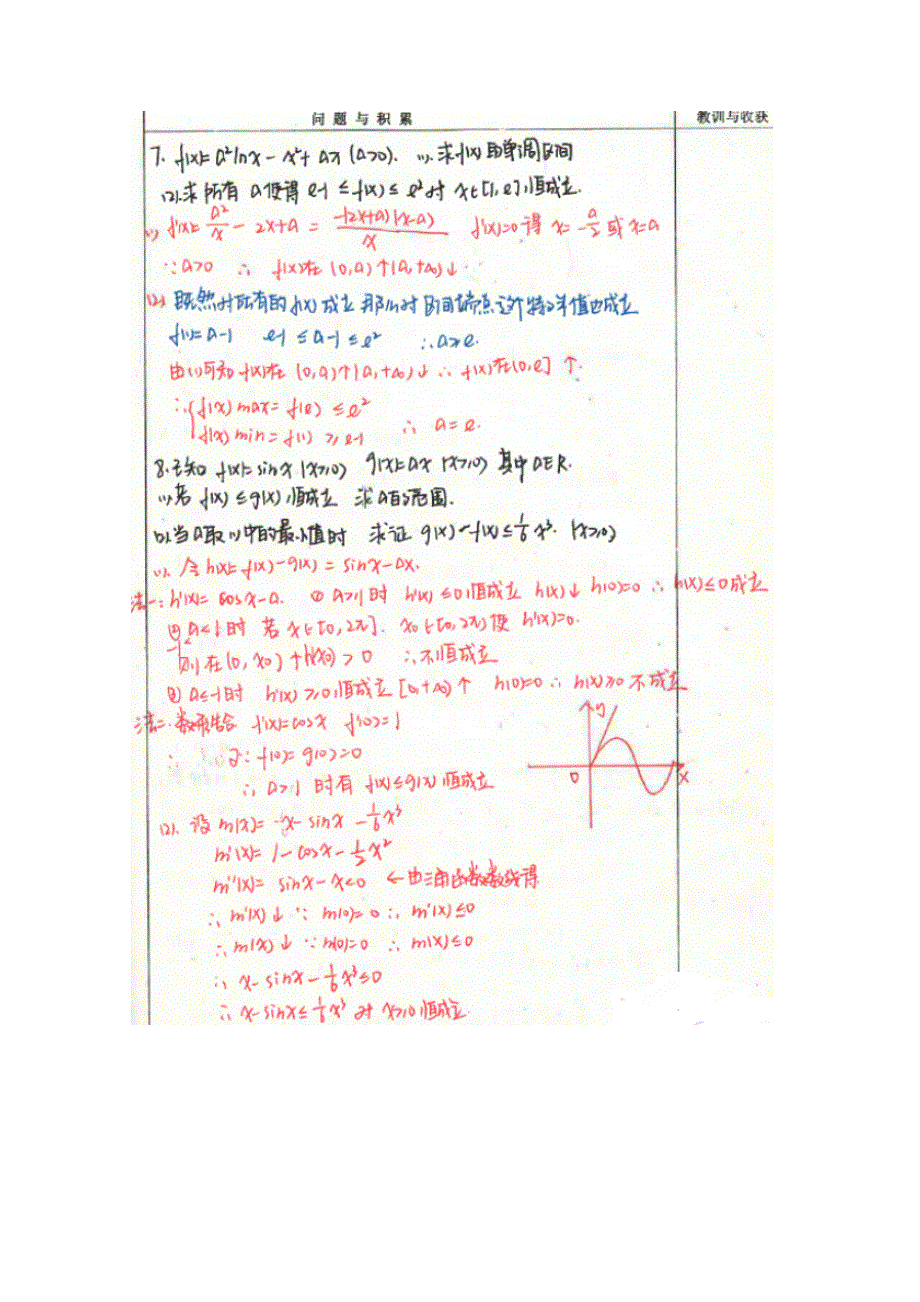 问题与积累 教训与收获
7. f(x)=a²lnx-x²+ax (a>0). (1).求f(x)的单调区间
(2).求所有a使得e-1≤f(x)≤e²对x∈[1,e]恒成立.
(1) f'(x)=a²/x-2x+a=-(2x+a)(x-a)/x f'(x)=0得x=-a/2或x=a
∵a>0 ∴ f(x)在(0,a)↑(a,+∞)↓.
(2) 既然对所有的f(x)成立那么对区间端点这个特殊值也成立
f(1)=a-1 e-1≤a-1≤e² ∴a≥e.
由(1)可知f(x)在(0,a)↑(a,+∞)↓∴f(x)在(0,e]↑.
∴{f(x)max=f(e)≤e²
f(x)min=f(1)≥e-1 ∴ a=e.
8.已知f(x)=sinx(x≥0) g(x)=ax(x≥0)其中a∈R.
(1)若f(x)≤g(x)恒成立 求a的范围.
(2).当a取(1)中的最小值时 求证g(x)-f(x)≤1/6x³.(x≥0)
(1). 令h(x)=f(x)-g(x)=sinx-ax.
法一:h'(x)=cosx-a. ①a≥1时 h'(x)≤0恒成立 h(x)↓ h(0)=0∴h(x)≤0成立
②-1<a<1时 若x∈[0,2π]. x₀∈[0,2π)使h'(x)=0.
则在(0,x₀)↑h(x₀)>0 ∴不恒成立
③a≤-1时 h'(x)≥0恒成立[0,+∞)↑ h(0)=0∴h(x)≥0不成立
法二:数形结合 f'(x)=cosx f'(0)=1
∴ 又∵f(0)=g(0)=0
∴a≥1时有f(x)≤g(x)恒成立
y
0 x
(2). 设m(x)=x-sinx-1/6x³
m'(x)=1-cosx-1/2x²
m''(x)=sinx-x<0 ←由三角函数线得
∴m'(x)↓∵m(0)=0∴m'(x)≤0
∴m(x)↓∵m(0)=0∴m(x)≤0
∴x-sinx-1/6x³≤0
∴x-sinx≤1/6x³对x≥0恒成立.